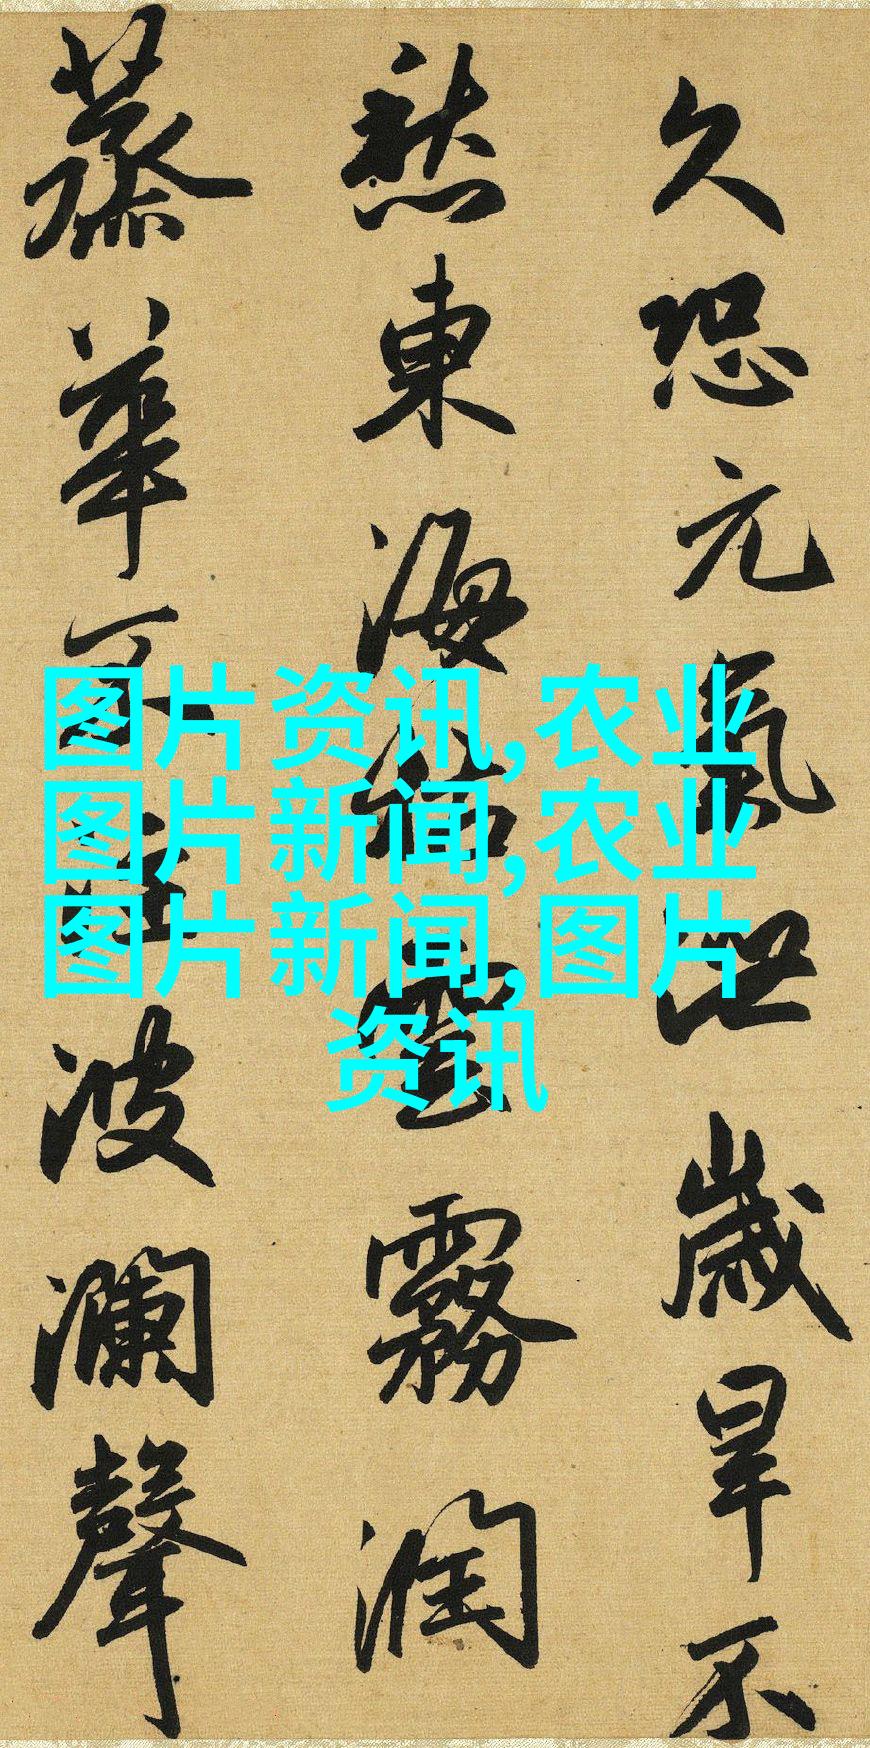 久恐元氣泄歲旱不
愁東海枯雲霧潤
蒸華不注波瀾聲
图片资讯,农业
图片新闻,农业
图片新闻,图片
资讯